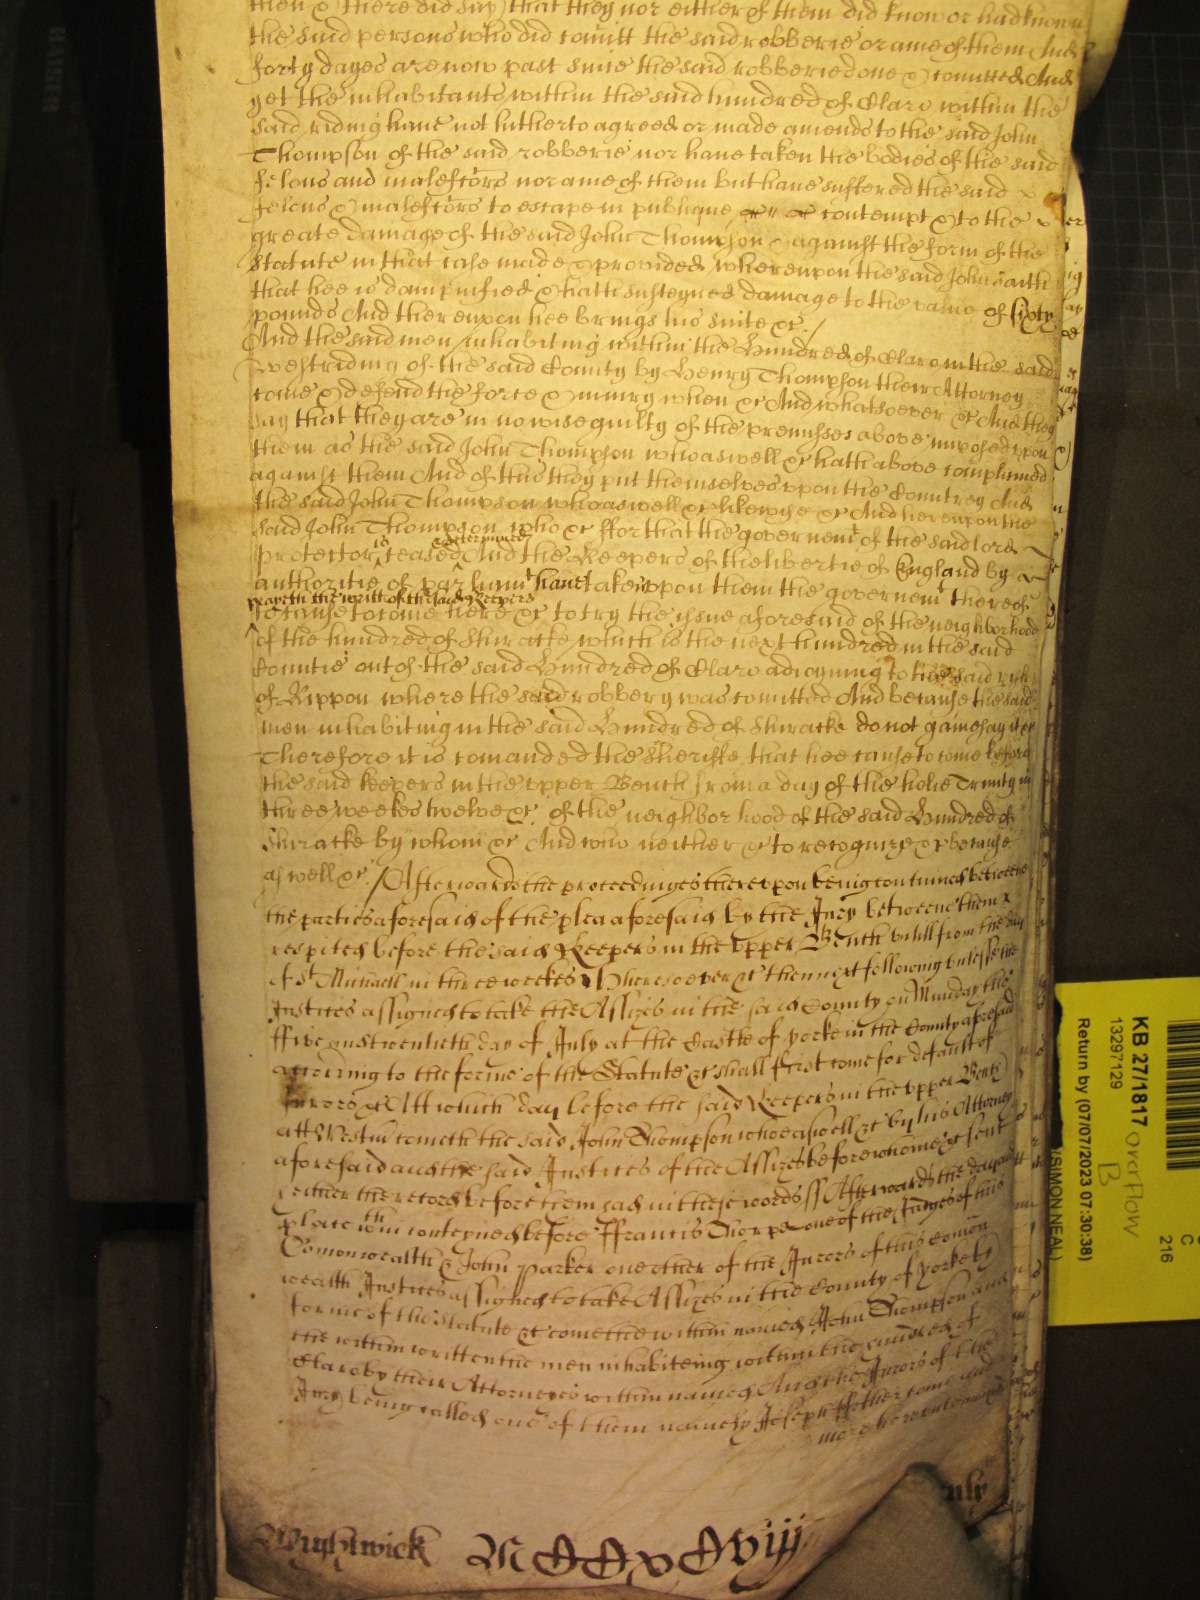 then & there did say that they nor either of them did know or had known
the said persons who did comitt the said robberie or anie of them And
forty dayes are now past since the said robberie done & comitted And
yet the inhabitants within the said hundred of Claro within the
said riding have not hitherto agreed or made amends to the said John
Thompson of the said robberie nor have taken the bodies of the said
felons and malefctors nor anie of them but have suffered the said &
felons & malefctors to escape in publique contempt & to the
greate damage of the said John Thompson & against the form of the
statute in that case made & provided whereupon the said John saith
that hee is dampnified & hath susteyned damage to the value of sixty
pounds And thereupon hee brings his suite &c. /
And the said men inhabiting within the Hundred of Claro in the said
Westriding of the said County by Henry Thompson their Attorney
come & defend the force & iniury when &c And whatsoever &c And they
say that they are in no wise guilty of the premisses above imposed upon
them as the said John Thompson who aswell &c hath above complained
against them And of this they put themselves upon the Countrey And
the said John Thompson who aswell &c likewise &c And hereupon the
said John Thompson who &c ffor that the governemt of the said lord
protector is ceased & determined And the Keepers of the libertie of England by
authoritie of parliamt have taken upon them the governemt thereof
prayeth the writt of the said Keepers
to cause to come here &c to try the issue aforesaid of the neighborhood
of the hundred of Skiracke which is the next hundred in the said
Countie out of the said Hundred of Claro adioyning to the said
of Rippon where the said robbery was comitted And because the said
men inhabiting in the said Hundred of Skiracke do not gainesay it &c
Therefore it is comanded the Sheriffe that hee cause to come before
the said keepers in the upper Bench from a day of the holie Trinity in
three weekes twelve &c. of the neighbor hood of the said Hundred of
Skiracke by whom &c And who neither &c to recognize &c because
aswell &c. / Afterwards the proceedinges thereupon being continued betweene
the parties aforesaid of the plea aforesaid by the Jury betweene them
respited before the said Keepers in the upper Bench untill from the day
of St Michaell in three weekes Wheresoever &c then next following unlesse the
Justices assigned to take the Assizes in the said County on Munday the
ffive and twentieth day of July at the Castle of yorke in the County aforesaid
according to the forme of the Statute &c shall first come for default of
Jurors &c Att which day before the said Keepers in the upper Bench
att Westm cometh the said John Thompson who aswell &c by his Attorney
aforesaid and the said Justices of the Assizes before whome &c sent
hither the record before them had in these words ss Afterwards the day and
place wthin conteyned before Ffrancis Thorpe one of the Judges of this
Comonwealth & John Parker one other of the Jurors of this Comon
wealth Justices assigned to take Assizes in the County of yorke by
forme of the Statute &c come the within named John Thompson and
the within written the men inhabiteing within the hundred of
Claro by their Attorneyes within named And the Jurors of the
Jury being called one of them namely Joseph come and
more hereunto
Wightwick MDCCXVIII
KB 27/1817 overflow
B
13297129
Return by (07/07/2023 07:30:38)
(SIMON NEAL)
C
216